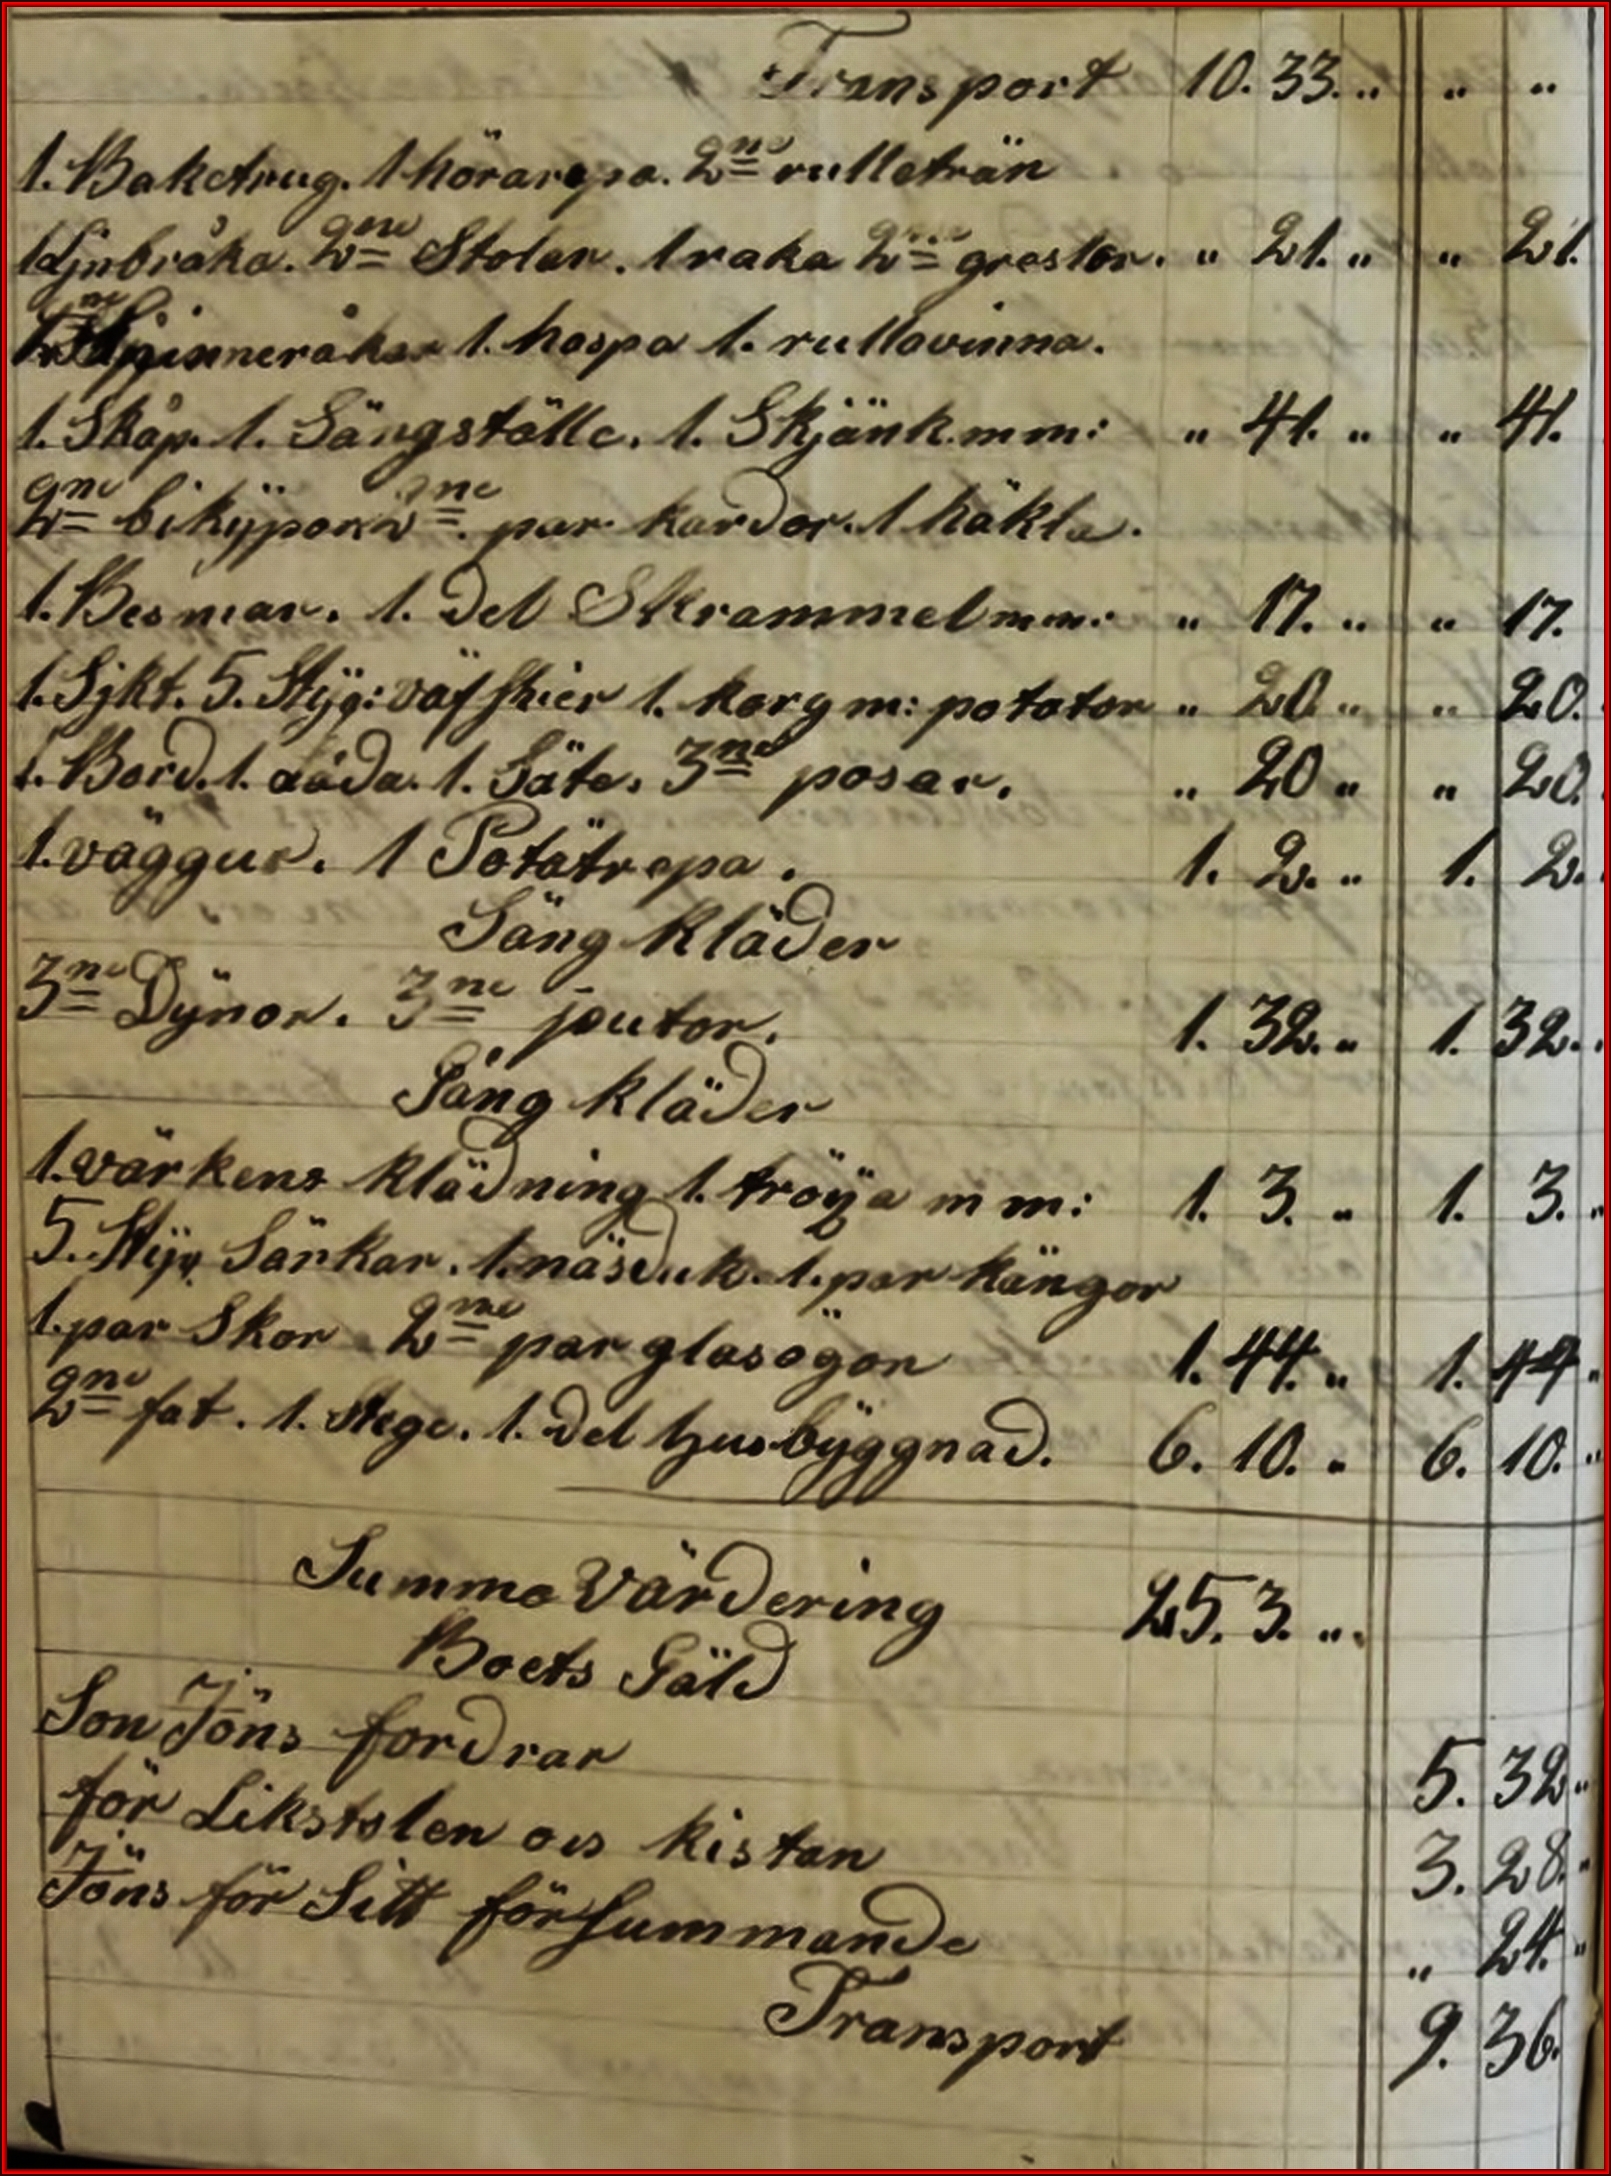 Transport 10. 33. „ „ „
1. Baketrug. 1 hörarepa. 2ne rulleträn
1 Ljnbråka. 2ne Stolar. 1 raka 2ne greslor. „ 21. „ „ 21.
Spinneråkar 1. haspa 1. rullavinna.
1. Skåp. 1. Sängställe. 1. Skjänk. mm: „ 41. „ „ 41.
2ne bikÿpor 2ne par kardor. 1 häkla.
1. Besman. 1. del Skrammel mm: „ 17. „ „ 17.
1. Sjkt. 5. Stÿc: väfskier 1. korg m: potator „ 20 „ „ 20.
1. Bord. 1. 1. Säte. 3ne posar. „ 20 „ „ 20.
1. väggur. 1 Potätrepa. 1. 2. „ 1. 2.
Säng kläder
3ne Dÿnor. 3ne putor. 1. 32. „ 1. 32.
Gång kläder
1. värkens klädning 1. tröÿa mm: 1. 3. „ 1. 3. „
5. Stÿc Särkar. 1. näsduk. 1. par kängor
1. par Skor 2ne par glasögon 1. 44. „ 1. 44 „
2ne fat. 1. Stege. 1. del husbÿggnad. 6. 10. „ 6. 10. „
Summa Värdering 25. 3. „
Boets Gäld
Son Jöns fordrar 5. 32 „
för Likstolen och kistan 3. 28. „
Jöns för Sitt försummande „ 24. „
Transport 9. 36.